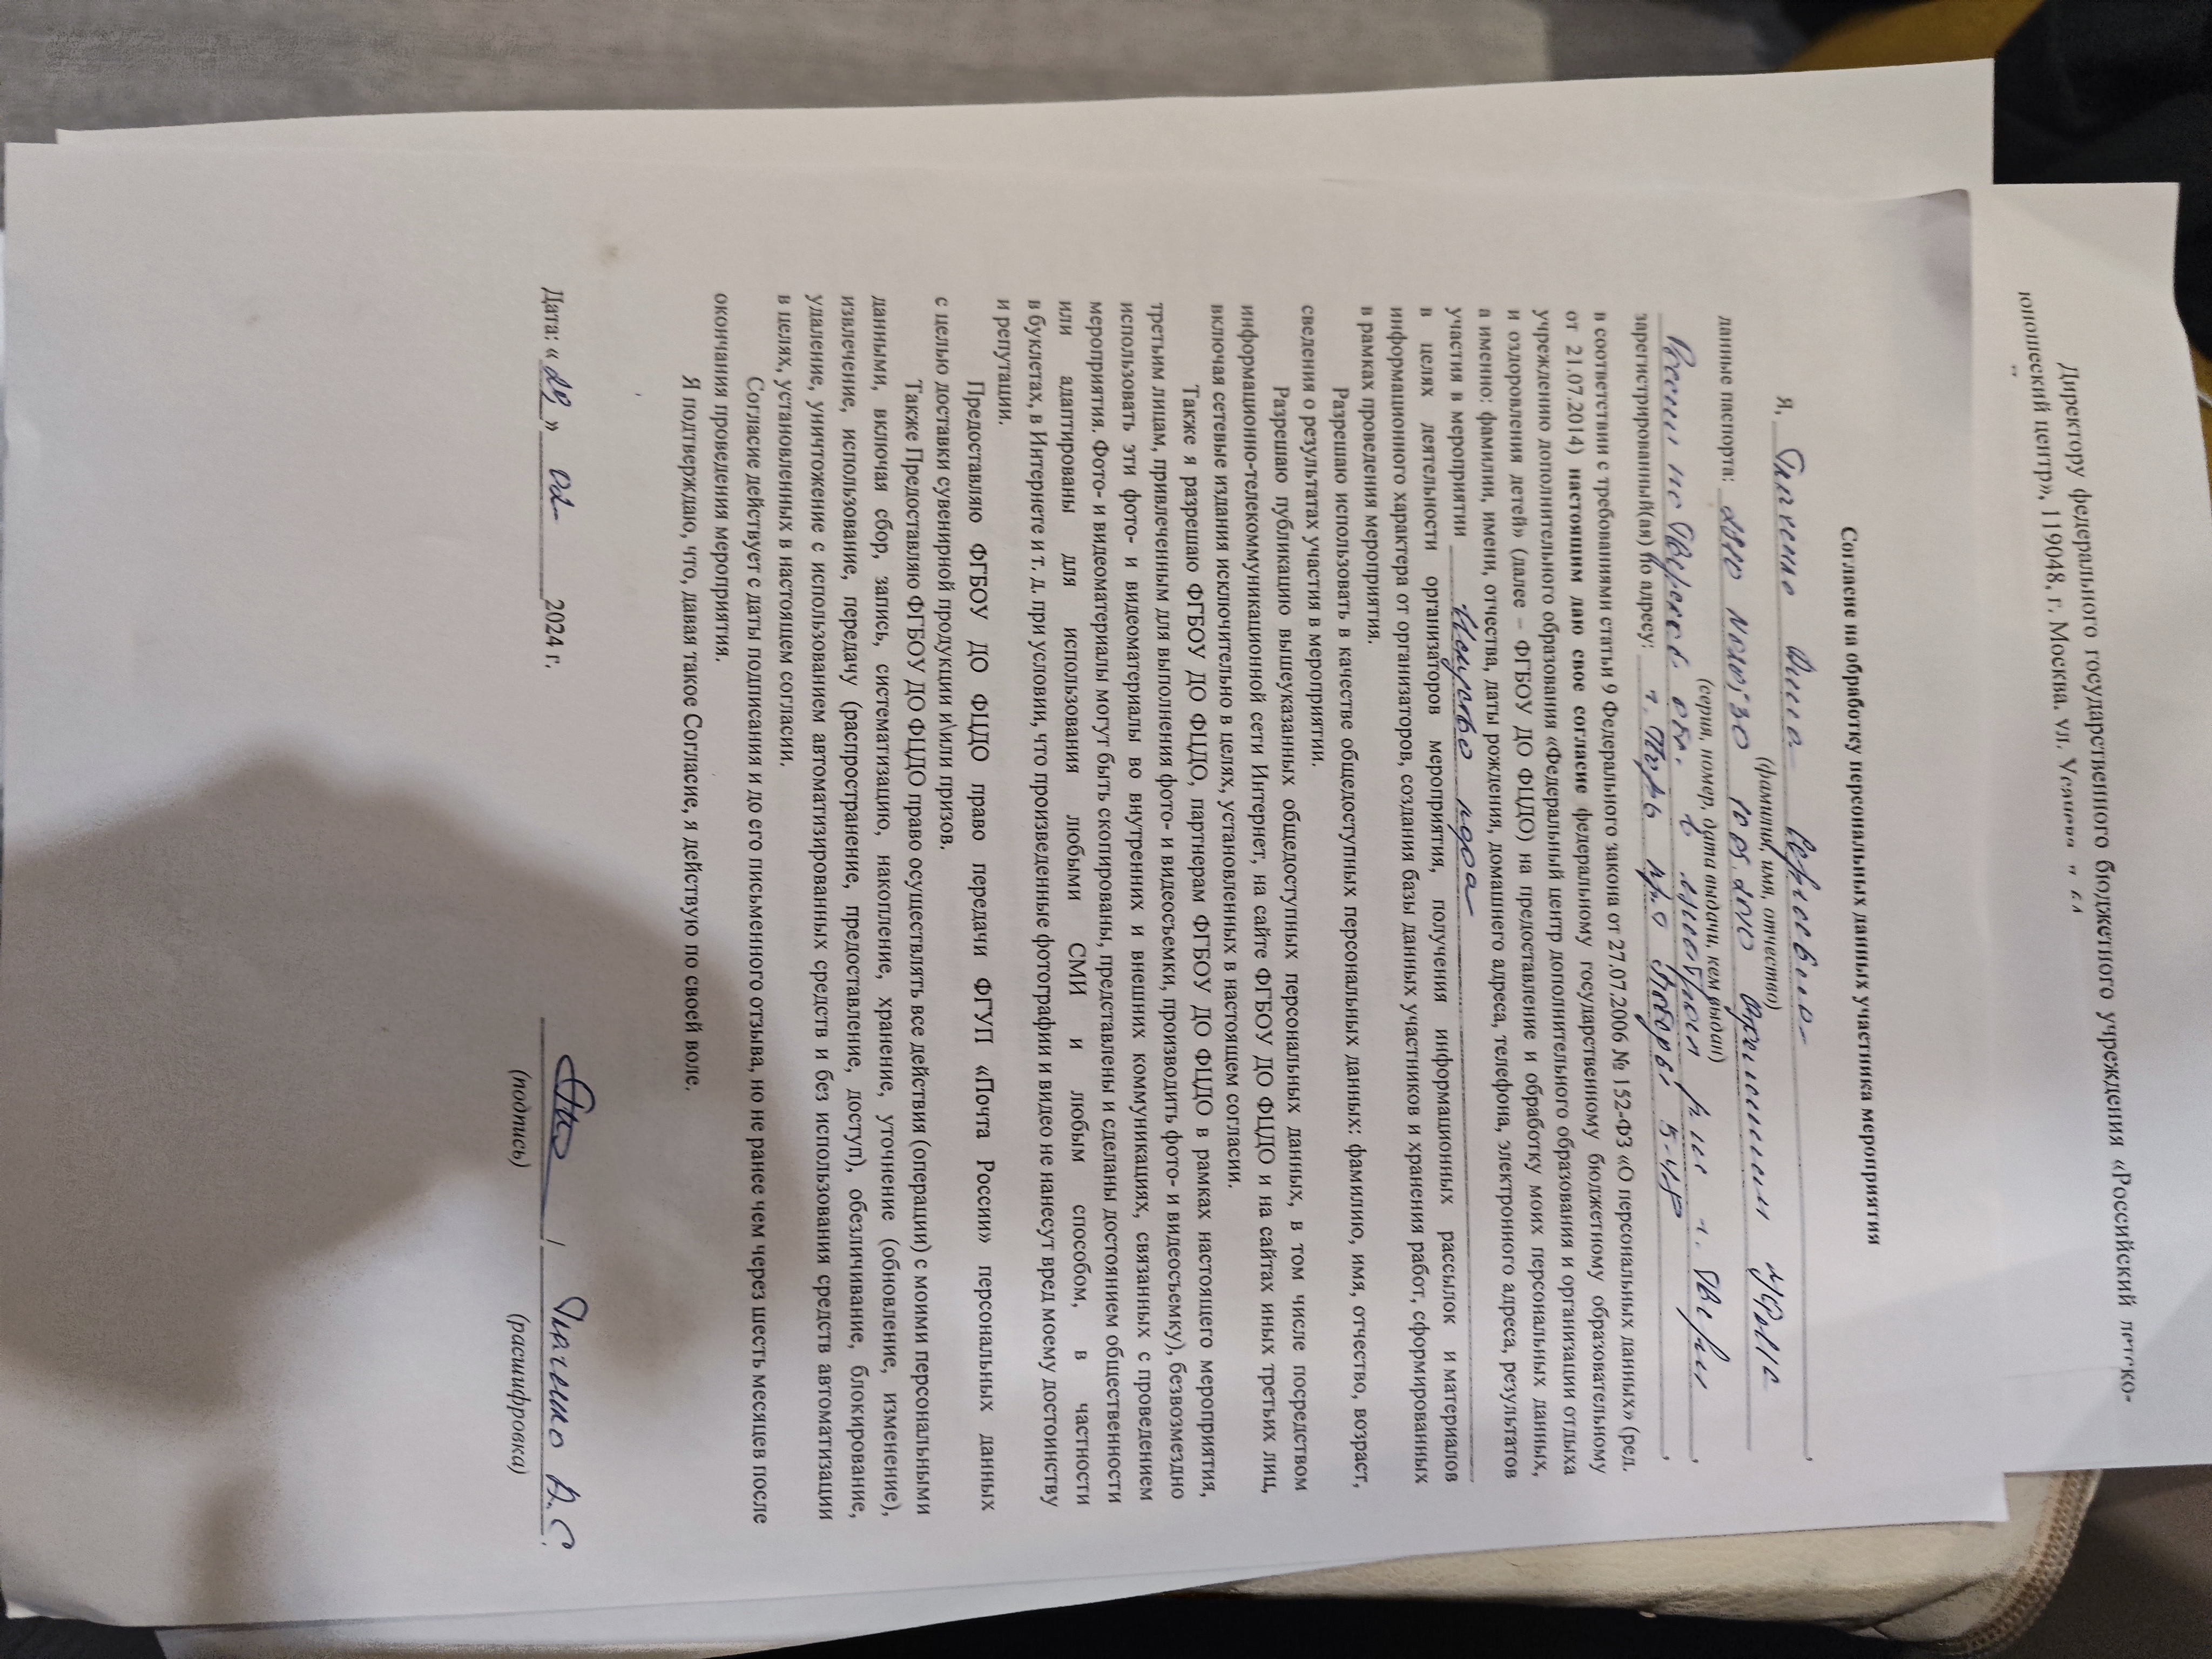 Директору федерального государственного бюджетного учреждения «Российский детско-
юношеский центр», 119048, г. Москва, ул. Усачева,
Согласие на обработку персональных данных участника мероприятия
Я, Анна Сергеевна,
(фамилия, имя, отчество)
данные паспорта:
(серия, номер, дата выдачи, кем выдан)
России по Тверской обл. в г. Твери,
зарегистрированный(ая) по адресу: г. Тверь пр-т Победы,
в соответствии с требованиями статьи 9 Федерального закона от 27.07.2006 № 152-ФЗ «О персональных данных» (ред.
от 21.07.2014) настоящим даю свое согласие федеральному государственному бюджетному образовательному
учреждению дополнительного образования «Федеральный центр дополнительного образования и организации отдыха
и оздоровления детей» (далее – ФГБОУ ДО ФЦДО) на предоставление и обработку моих персональных данных,
а именно: фамилии, имени, отчества, даты рождения, домашнего адреса, телефона, электронного адреса, результатов
участия в мероприятии
в целях деятельности организаторов мероприятия, получения информационных рассылок и материалов
информационного характера от организаторов, создания базы данных участников и хранения работ, сформированных
в рамках проведения мероприятия.
Разрешаю использовать в качестве общедоступных персональных данных: фамилию, имя, отчество, возраст,
сведения о результатах участия в мероприятии.
Разрешаю публикацию вышеуказанных общедоступных персональных данных, в том числе посредством
информационно-телекоммуникационной сети Интернет, на сайте ФГБОУ ДО ФЦДО и на сайтах иных третьих лиц,
включая сетевые издания исключительно в целях, установленных в настоящем согласии.
Также я разрешаю ФГБОУ ДО ФЦДО, партнерам ФГБОУ ДО ФЦДО в рамках настоящего мероприятия,
третьим лицам, привлеченным для выполнения фото- и видеосъемки, производить фото- и видеосъемку), безвозмездно
использовать эти фото- и видеоматериалы во внутренних и внешних коммуникациях, связанных с проведением
мероприятия. Фото- и видеоматериалы могут быть скопированы, представлены и сделаны достоянием общественности
или адаптированы для использования любыми СМИ и любым способом, в частности
в буклетах, в Интернете и т. д. при условии, что произведенные фотографии и видео не нанесут вред моему достоинству
и репутации.
Предоставляю ФГБОУ ДО ФЦДО право передачи ФГУП «Почта России» персональных данных
с целью доставки сувенирной продукции и\или призов.
Также Предоставляю ФГБОУ ДО ФЦДО право осуществлять все действия (операции) с моими персональными
данными, включая сбор, запись, систематизацию, накопление, хранение, уточнение (обновление, изменение),
извлечение, использование, передачу (распространение, предоставление, доступ), обезличивание, блокирование,
удаление, уничтожение с использованием автоматизированных средств и без использования средств автоматизации
в целях, установленных в настоящем согласии.
Согласие действует с даты подписания и до его письменного отзыва, но не ранее чем через шесть месяцев после
окончания проведения мероприятия.
Я подтверждаю, что, давая такое Согласие, я действую по своей воле.
Дата: « » 2024 г. / А.С.
(подпись) (расшифровка)